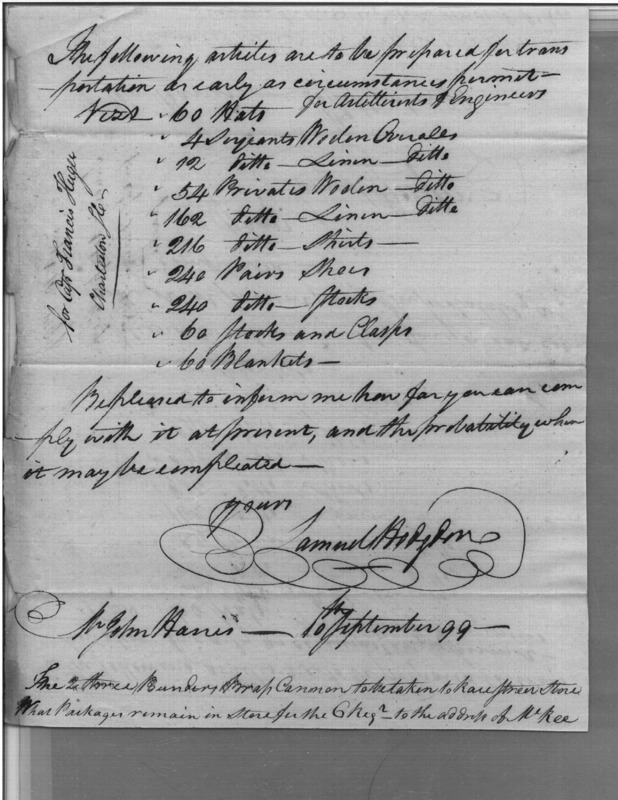 The following articles are to be prepared for trans
portation as early as circumstances permit—
Vizt 60 Hats for Artillerists & Engineers
" 4 Sergeants Wolen Overales
" 12 ditto — Linen — ditto
" 54 Privates Wolen — ditto
" 162 ditto — Linen — ditto
" 216 ditto — Shirts —
" 240 Pairs Shoes
" 240 ditto — Socks
" 60 Stocks and Clasps
" 60 Blankets —
for Cap Francis Huger
Charleston So
Be pleased to inform me how far you can com
-ply with it at present, and the probability when
it may be compleated —
yours
Samuel Hodgdon
Mr John Harris — 10th September 99 —
The 2 three Pounders Brass Cannon to be taken to Race Street Store
What Packages remain in Store for the 6 Regt to the address of Mr Kee